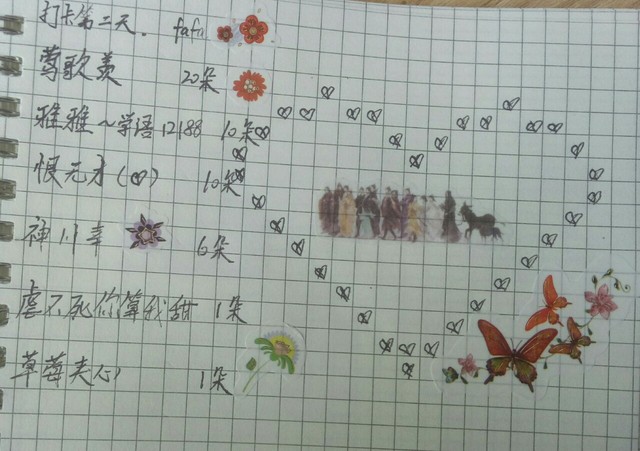 打卡第二天. fafa
莺歌羡 20朵
雅雅~学语12188 10朵
恨无才(ꕤ) 10朵
神川幸 6朵
虐不死你算我甜 1朵
草莓夹心 1朵